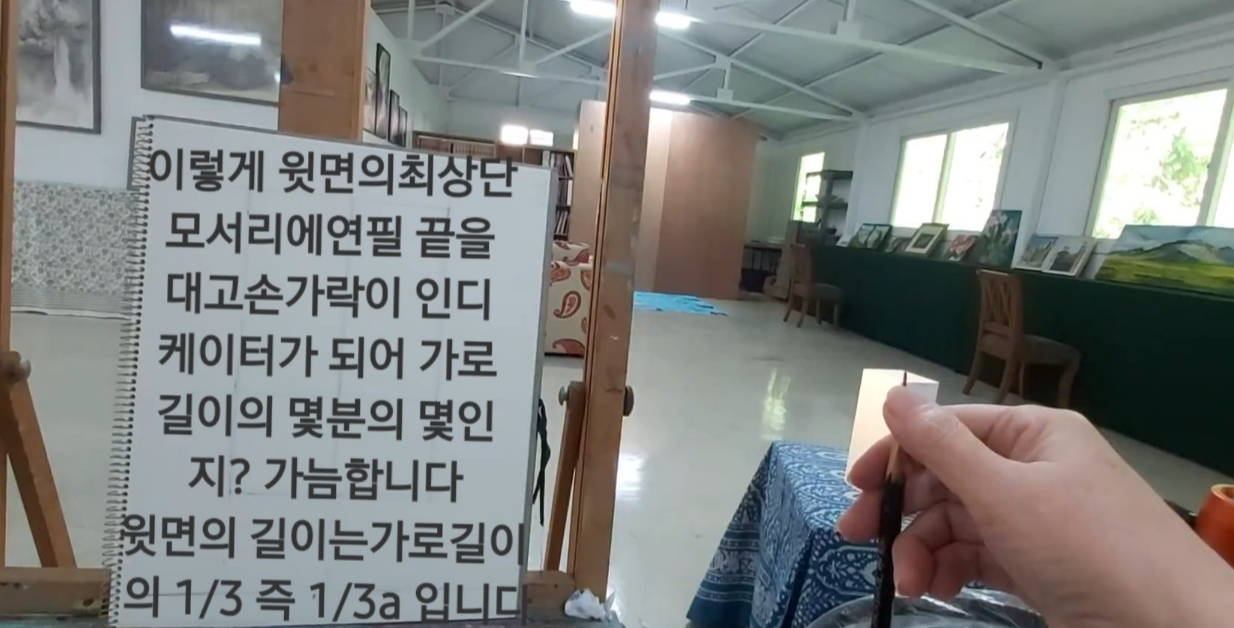 이렇게 윗면의최상단
모서리에연필 끝을
대고손가락이 인디
케이터가 되어 가로
길이의 몇분의 몇인
지? 가늠합니다
윗면의 길이는가로길이
의 1/3 즉 1/3a 입니다